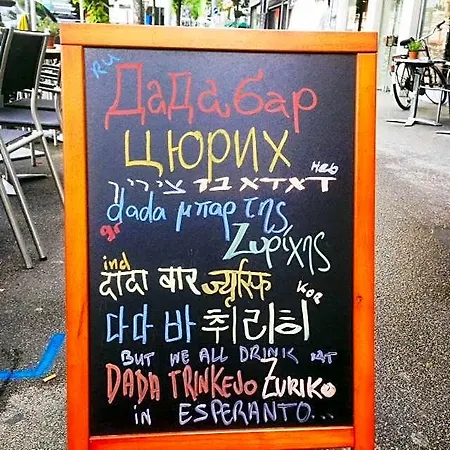 RU
Дадабар
цюрих
Heb
דאדא בר ציריך
dada μπαρ της
gr
Ζυρίχης
ind
दादा बार ज्यूरिख
Kor
다다 바 취리히
BUT WE ALL DRINK AT
DADA TRINKEJO ZURIKO
in ESPERANTO...